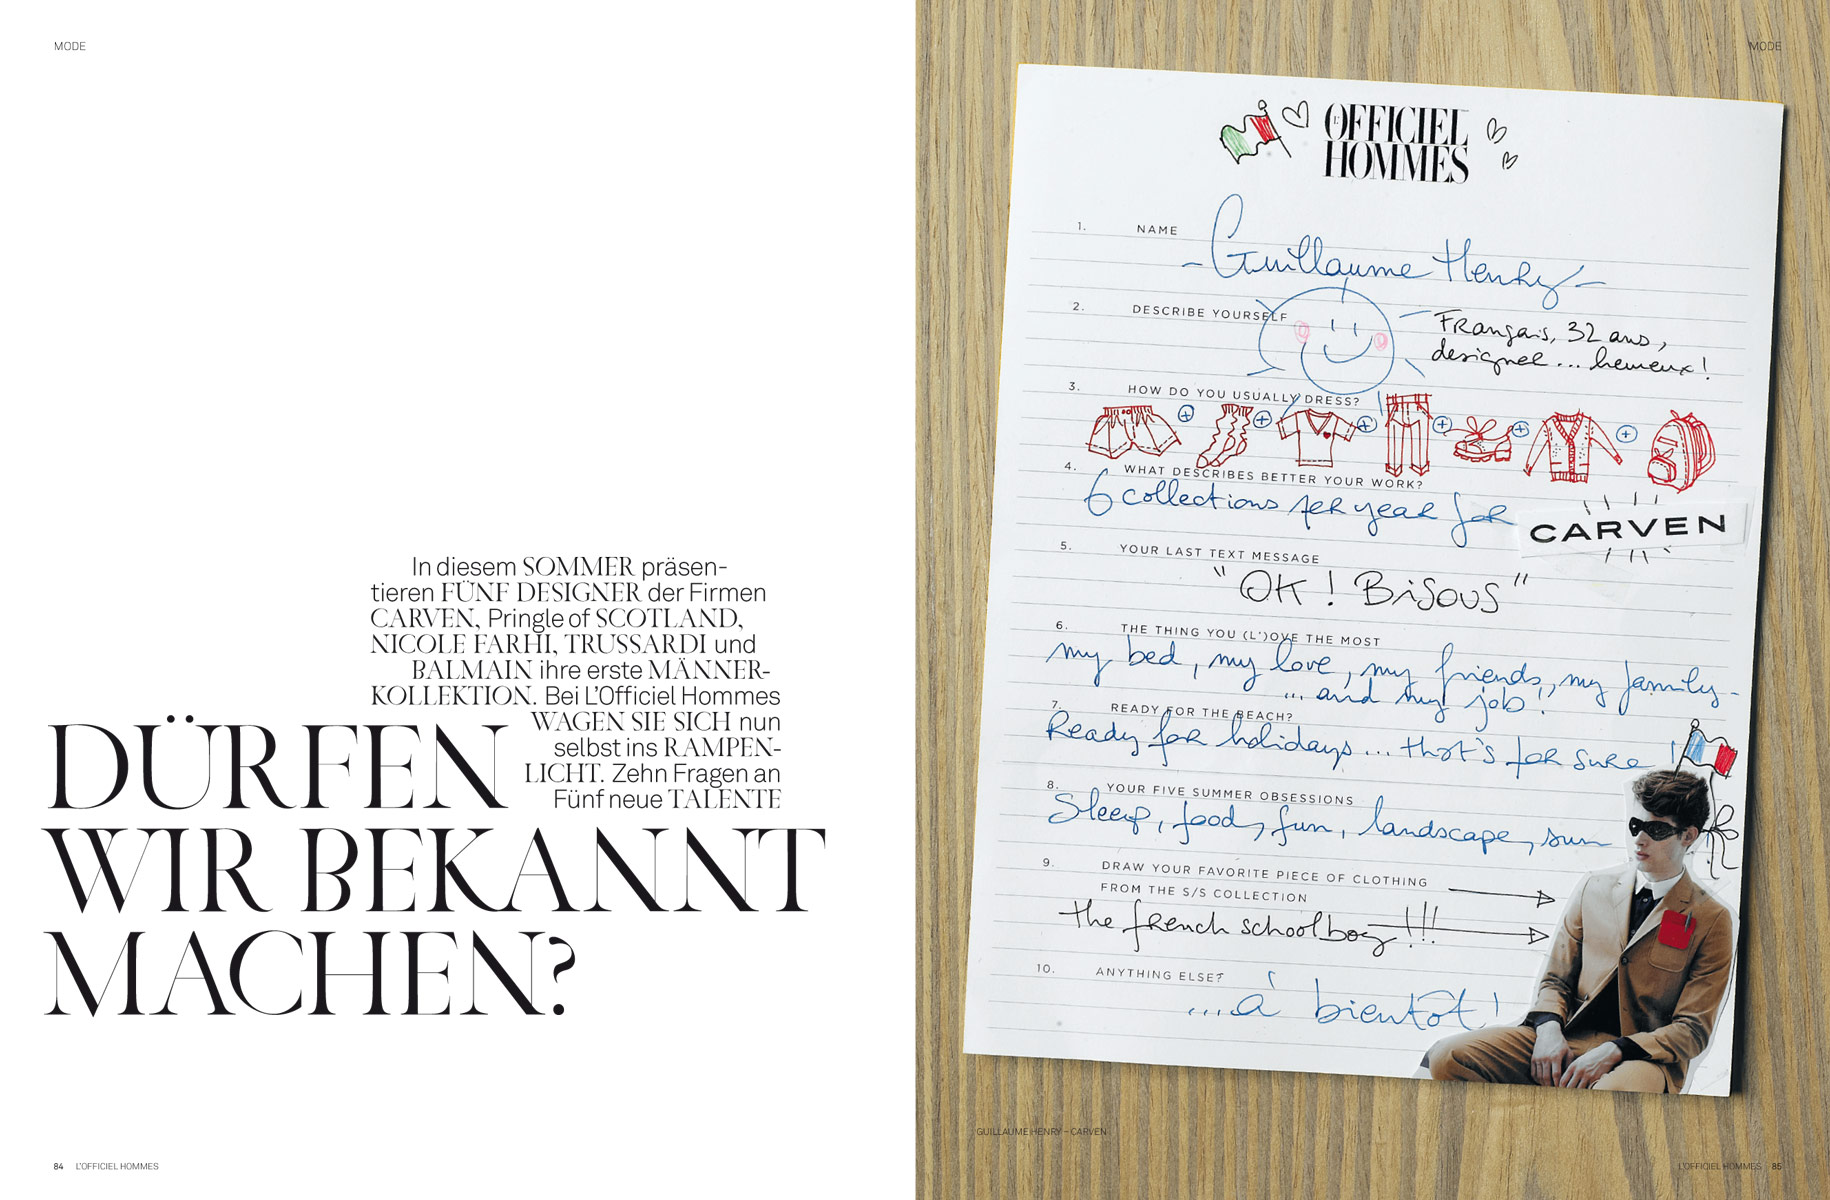 MODE
In diesem SOMMER präsen-
tieren FÜNF DESIGNER der Firmen
CARVEN, Pringle of SCOTLAND,
NICOLE FARHI, TRUSSARDI und
BALMAIN ihre erste MÄNNER-
KOLLEKTION. Bei L'Officiel Hommes
WAGEN SIE SICH nun
selbst ins RAMPEN-
LICHT. Zehn Fragen an
Fünf neue TALENTE
DÜRFEN
WIR BEKANNT
MACHEN?
84 L'OFFICIEL HOMMES
MODE
L'OFFICIEL
HOMMES
1. NAME
- Guillaume Henry -
2. DESCRIBE YOURSELF
Français, 32 ans,
designer... heureux!
3. HOW DO YOU USUALLY DRESS?
+ + + + + +
4. WHAT DESCRIBES BETTER YOUR WORK?
6 collections per year for CARVEN
5. YOUR LAST TEXT MESSAGE
"OK! Bisous"
6. THE THING YOU (L')OVE THE MOST
my bed, my love, my friends, my family -
... and my job!
7. READY FOR THE BEACH?
Ready for holidays... that's for sure!
8. YOUR FIVE SUMMER OBSESSIONS
Sleep, food, fun, landscape, sun
9. DRAW YOUR FAVORITE PIECE OF CLOTHING
FROM THE S/S COLLECTION
the french schoolboy!!!
10. ANYTHING ELSE?
...à bientôt!
GUILLAUME HENRY – CARVEN
L'OFFICIEL HOMMES 85